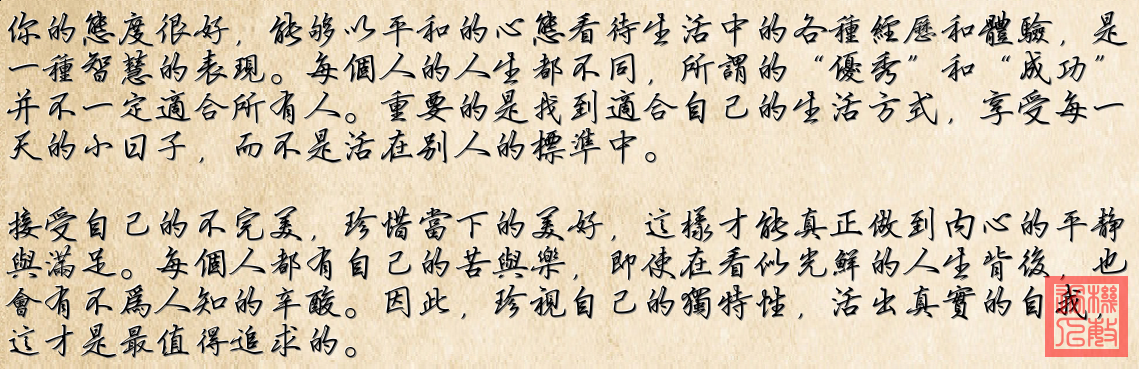 你的態度很好，能够以平和的心態看待生活中的各種經歷和體驗，是
一種智慧的表現。每個人的人生都不同，所謂的“優秀”和“成功”
并不一定適合所有人。重要的是找到適合自己的生活方式，享受每一
天的小日子，而不是活在别人的標準中。
接受自己的不完美，珍惜當下的美好，這樣才能真正做到内心的平静
與滿足。每個人都有自己的苦與樂，即使在看似光鮮的人生背後，也
會有不爲人知的辛酸。因此，珍視自己的獨特性，活出真實的自我，
這才是最值得追求的。